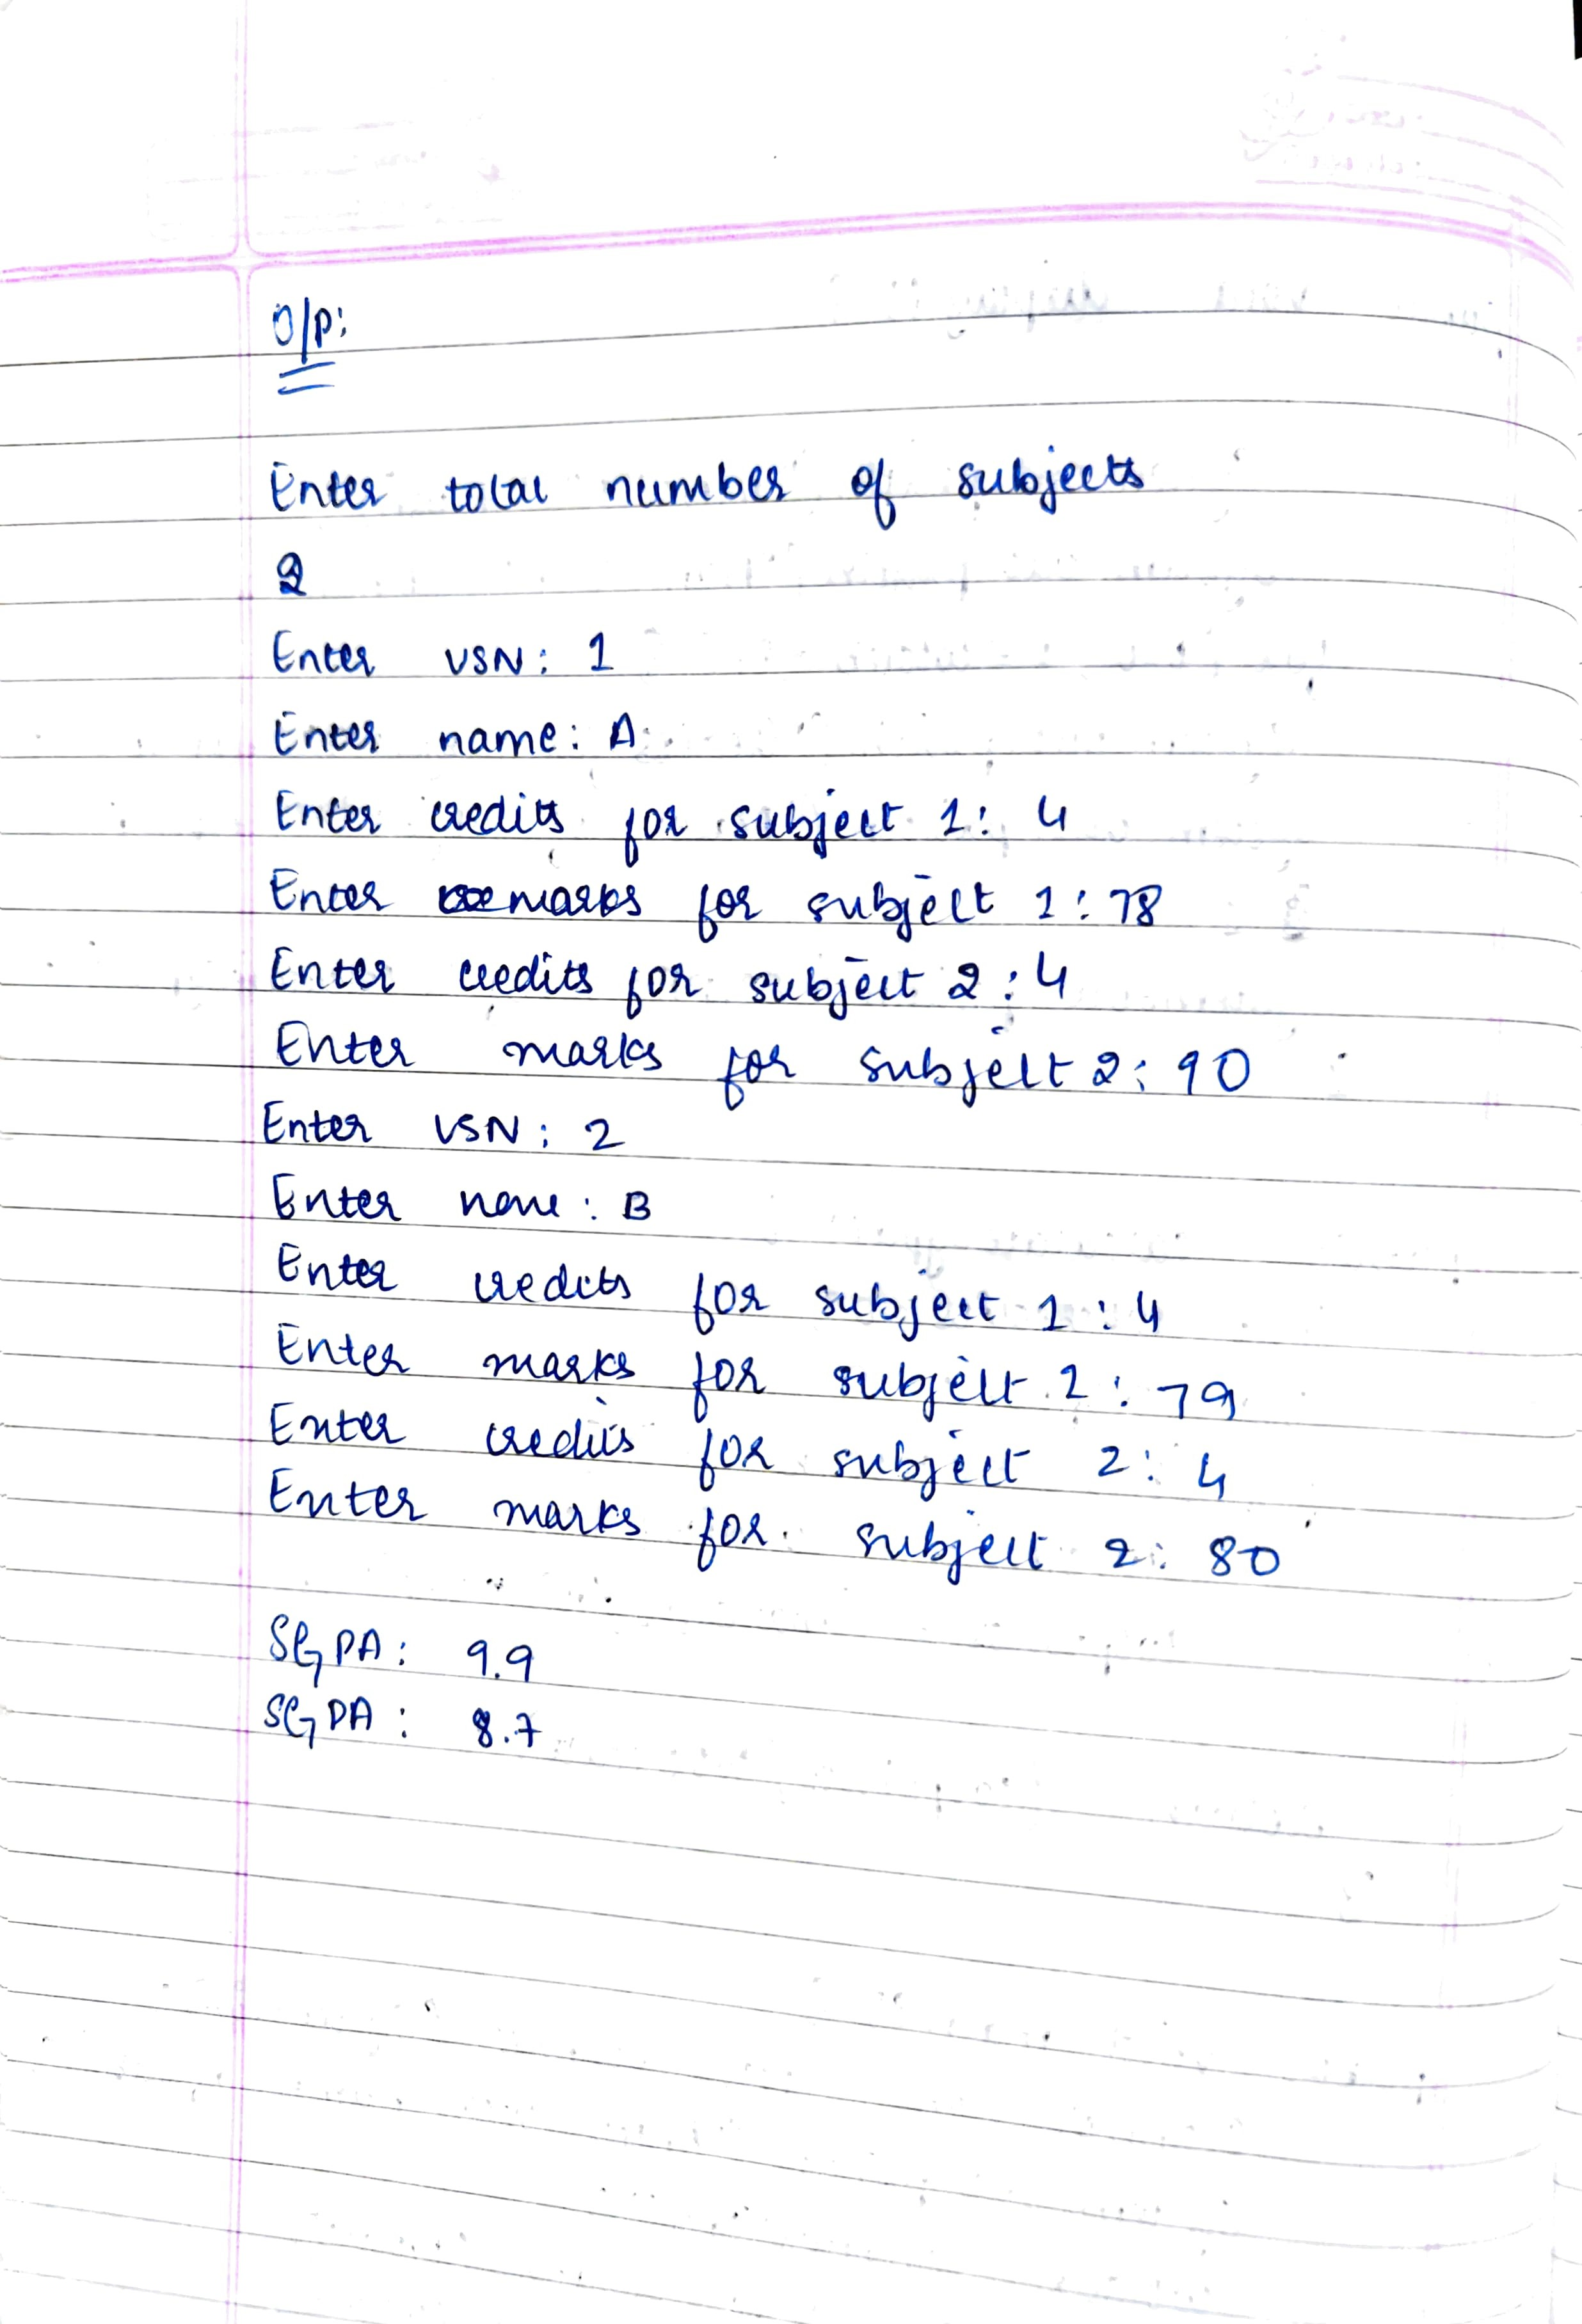 O/P:
Enter total number of subjects
2
Enter USN: 1
Enter name: A
Enter credits for subject 1: 4
Enter marks for subject 1: 78
Enter credits for subject 2: 4
Enter marks for subject 2: 90
Enter USN: 2
Enter name: B
Enter credits for subject 1: 4
Enter marks for subject 1: 79
Enter credits for subject 2: 4
Enter marks for subject 2: 80
SGPA: 9.9
SGPA: 8.7